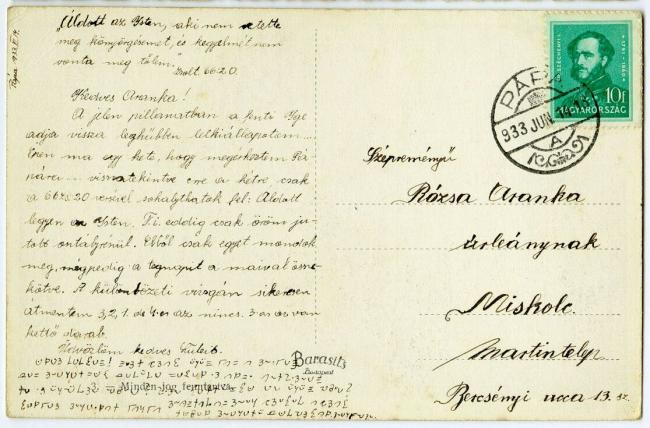 Pápa 933 VI 14.
"Áldott az Isten, aki nem vetette
meg könyörgésemet, és kegyelmét nem
vonta meg tőlem."
Zsolt. 66.20.
Kedves Aranka!
A jelen pillanatban a fenti Ige
adja vissza leghűbben lelkiállapotom...
Éppen ma egy hete, hogy megérkeztem Pá
pára... visszatekintve erre a hétre csak
a 66 Zs 20 versével sóhajthatok fel: Áldott
legyen az Isten. T. i. eddig csak öröm ju-
tott osztályrészül. Ebből csak egyet mondok
meg, mégpedig a tegnapit a maival össze
kötve. A különbözeti vizsgán sikeresen
átmentem 3, 2, 1. de 4-es az nincs. 3-as is van
kettő darab.
Üdvözlöm kedves Szüleit.
Barasits
Budapest
Minden jog fenntartva
SZÉCHENYI
1791-1860
10f
MAGYARORSZÁG
PÁPA
933 JUN.
A
Szépreményű
Rózsa Aranka
úrleánynak
Miskolc.
Martintelep
Bercsényi ucca 13. sz.